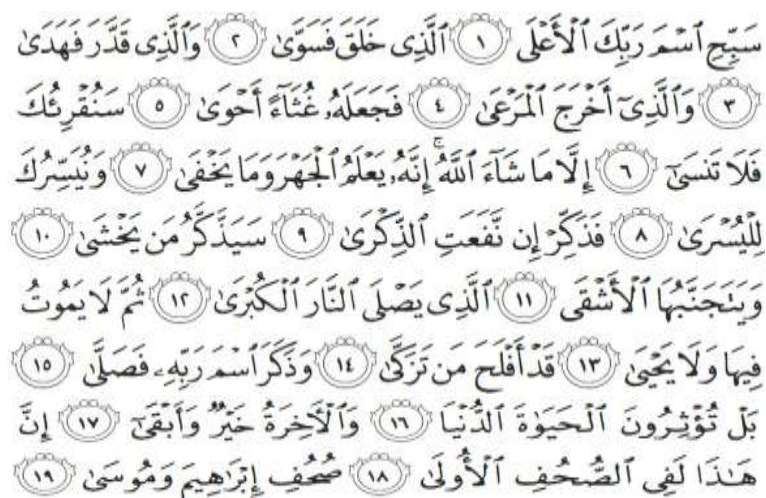 سَبِّحِ ٱسْمَ رَبِّكَ ٱلْأَعْلَى ١ ٱلَّذِى خَلَقَ فَسَوَّىٰ ٢ وَٱلَّذِى قَدَّرَ فَهَدَىٰ
٣ وَٱلَّذِىٓ أَخْرَجَ ٱلْمَرْعَىٰ ٤ فَجَعَلَهُۥ غُثَآءً أَحْوَىٰ ٥ سَنُقْرِئُكَ
فَلَا تَنسَىٰٓ ٦ إِلَّا مَا شَآءَ ٱللَّهُ ۚ إِنَّهُۥ يَعْلَمُ ٱلْجَهْرَ وَمَا يَخْفَىٰ ٧ وَنُيَسِّرُكَ
لِلْيُسْرَىٰ ٨ فَذَكِّرْ إِن نَّفَعَتِ ٱلذِّكْرَىٰ ٩ سَيَذَّكَّرُ مَن يَخْشَىٰ ١٠
وَيَتَجَنَّبُهَا ٱلْأَشْقَى ١١ ٱلَّذِى يَصْلَى ٱلنَّارَ ٱلْكُبْرَىٰ ١٢ ثُمَّ لَا يَمُوتُ
فِيهَا وَلَا يَحْيَىٰ ١٣ قَدْ أَفْلَحَ مَن تَزَكَّىٰ ١٤ وَذَكَرَ ٱسْمَ رَبِّهِۦ فَصَلَّىٰ ١٥
بَلْ تُؤْثِرُونَ ٱلْحَيَوٰةَ ٱلدُّنْيَا ١٦ وَٱلْءَاخِرَةُ خَيْرٌ وَأَبْقَىٰٓ ١٧ إِنَّ
هَـٰذَا لَفِى ٱلصُّحُفِ ٱلْأُولَىٰ ١٨ صُحُفِ إِبْرَٰهِيمَ وَمُوسَىٰ ١٩